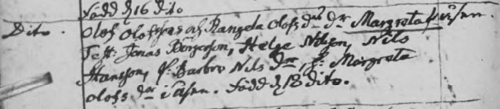 Född d 16 dito
Dito. Olof Olofsson och Rangela Olofs dr dr Margreta i åsen.
Test Jonas Börgesson, Helge Nilson, Nils
Hansson, H. Barbro Nils dr, P. Margreta
Olofs dr i åsen. Född d 18 dito.